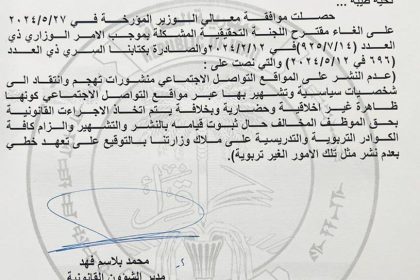 تحية طيبة ...
حصلت موافقة معالي الوزير المؤرخة في ٢٠٢٤/٥/٢٧
على الغاء مقترح اللجنة التحقيقية المشكلة بموجب الامر الوزاري ذي
العدد (٩٢٥/٧/١٤) في ٢٠٢٤/٢/١٢ والصادرة بكتابنا السري ذي العدد
(٦٩٦ في ٢٠٢٤/٥/١٢) والتي نصت على :
(عدم النشر على المواقع التواصل الاجتماعي منشورات تهجم وانتقاد الى
شخصيات سياسية وتشهير بها عبر مواقع التواصل الاجتماعي كونها
ظاهرة غير اخلاقية وحضارية وبخلافة يتم اتخاذ الاجراءات القانونية
بحق الموظف المخالف حال ثبوت قيامه بالنشر والتشهير والزام كافة
الكوادر التربوية والتدريسية على ملاك وزارتنا بالتوقيع على تعهد خطي
بعدم نشر مثل تلك الامور الغير تربوية).
محمد بلاسم فهد
مدير الشؤون القانونية